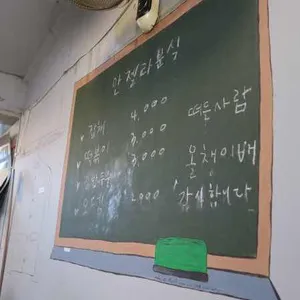 안젤라분식
잡채 4,000 떠든사람
떡볶이 3,000
3,000 올챙이배
2000 감사합니다